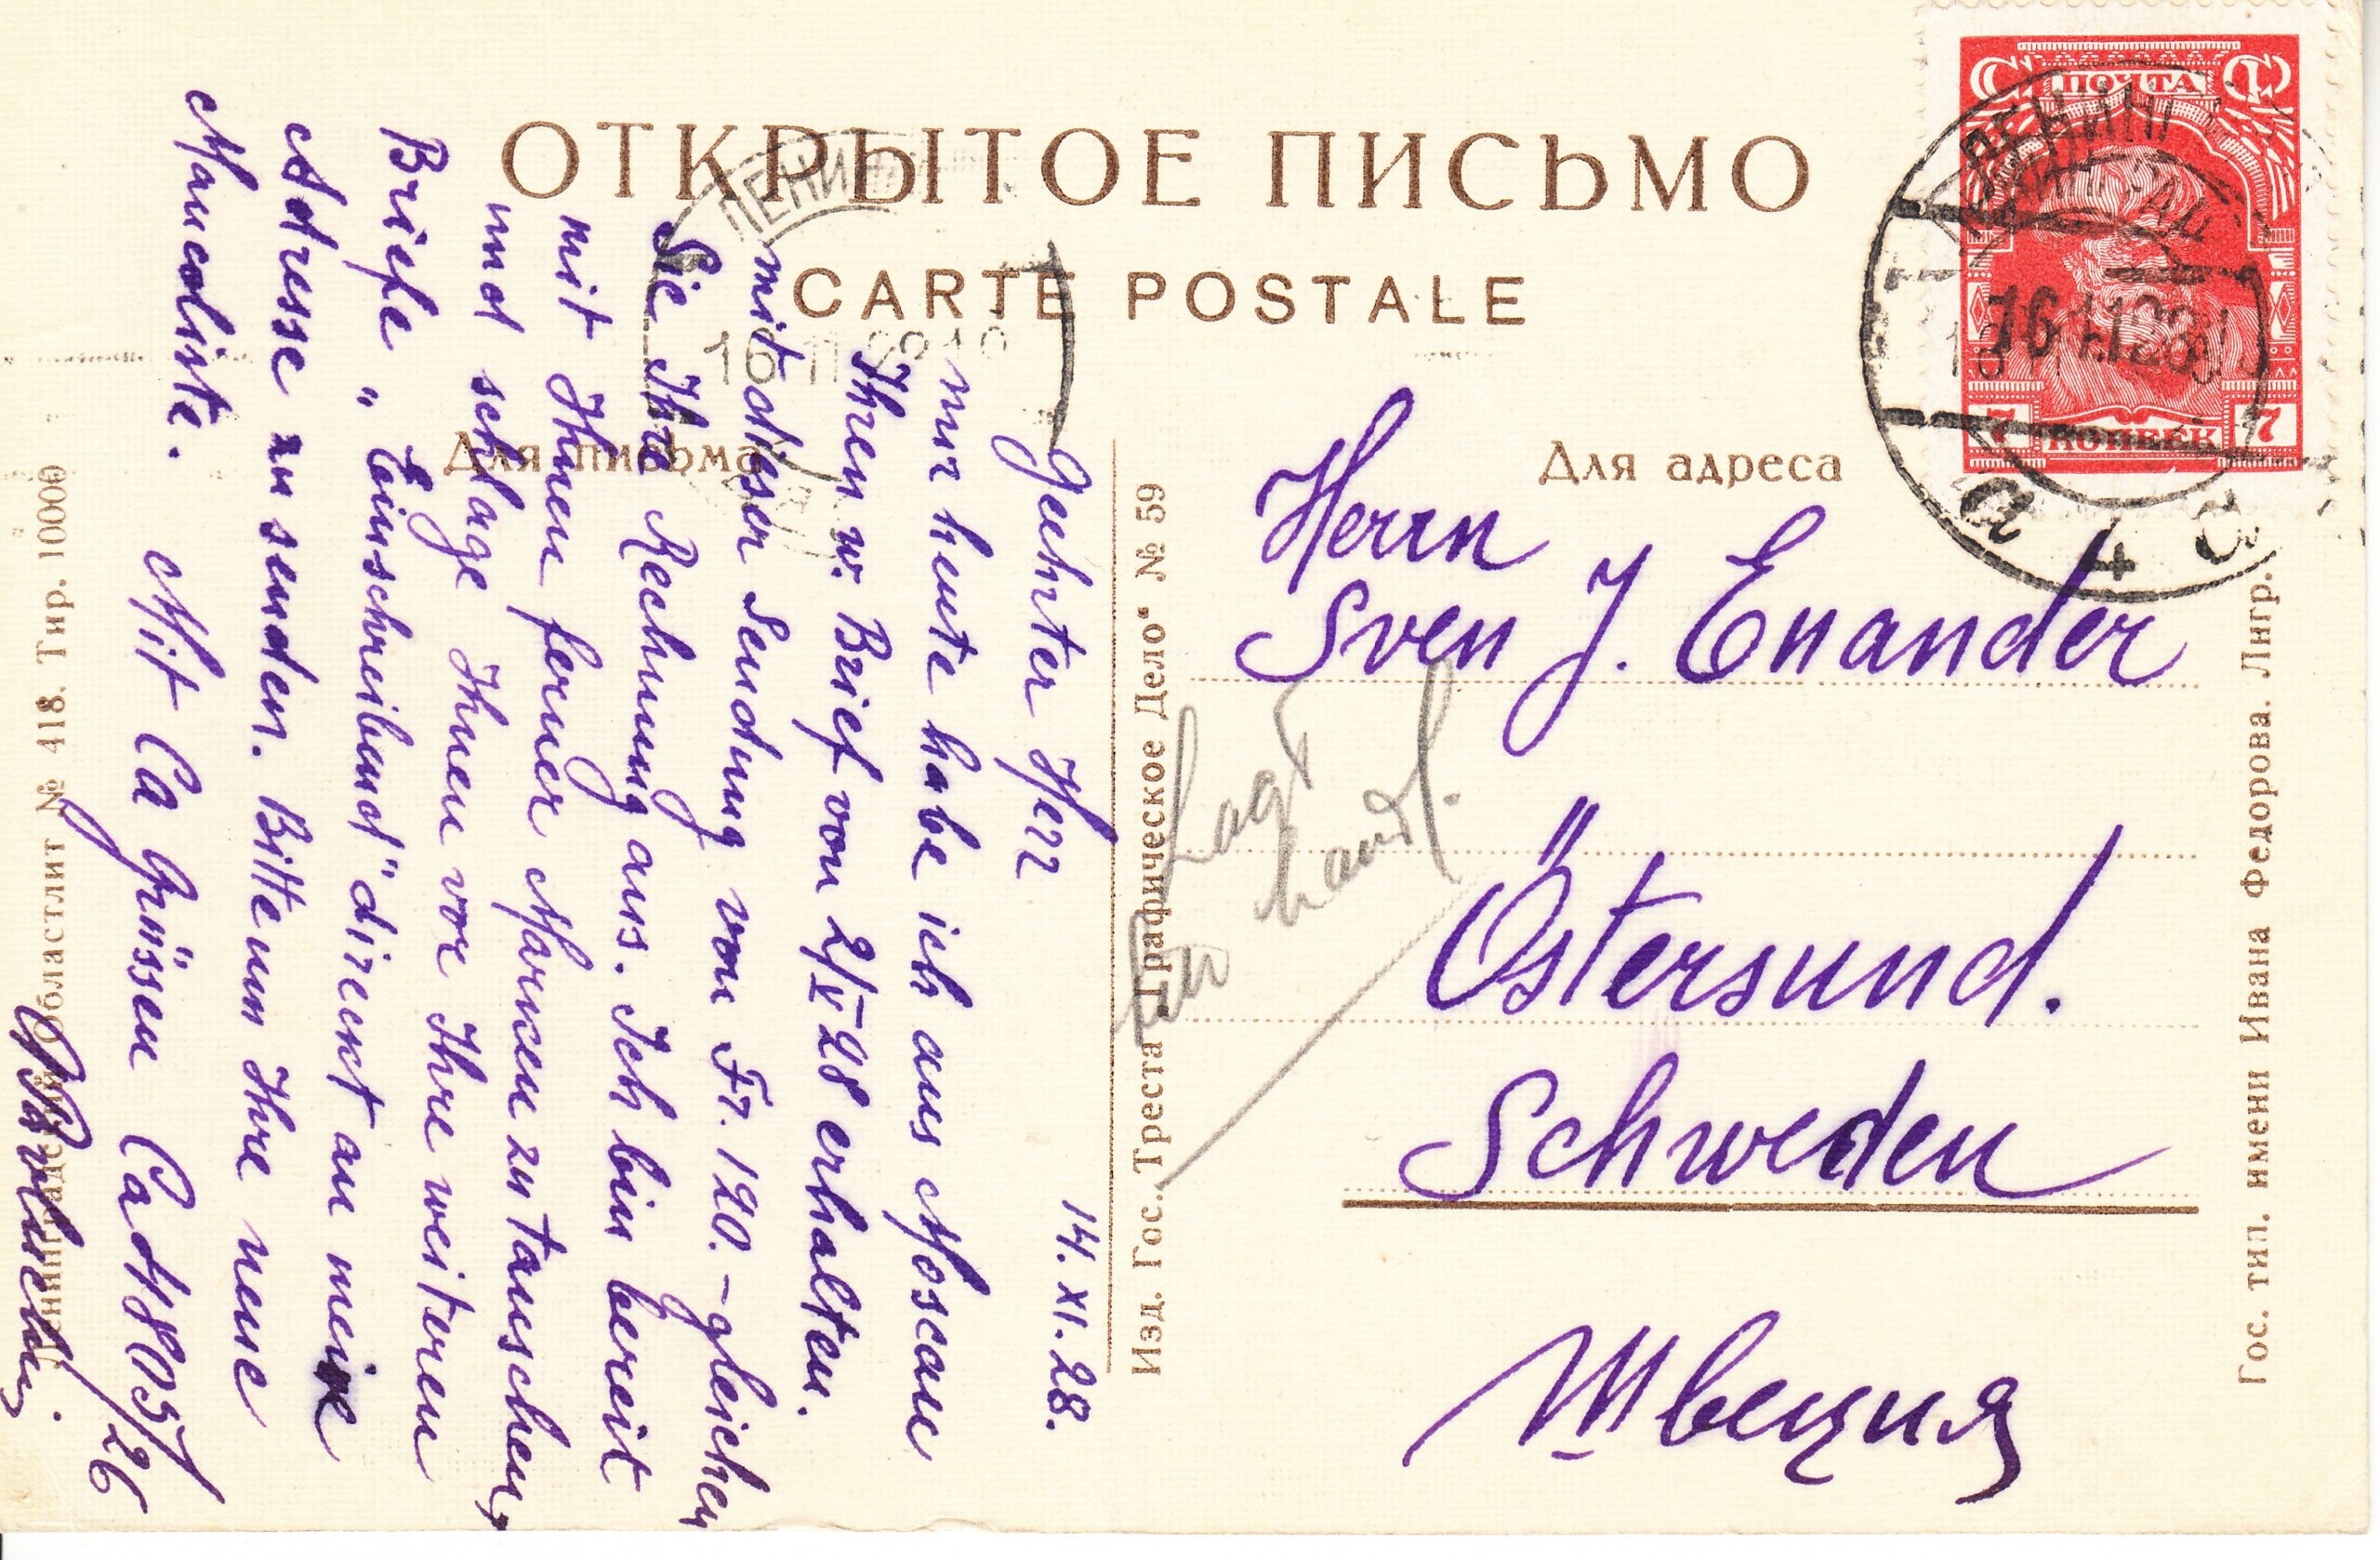 ОТКРЫТОЕ ПИСЬМО
CARTE POSTALE
Для письма
Для адреса
ПОЧТА
7 КОПЕЕК 7
16 11 28
14. XI. 28.
Geehrter Herr
nur heute habe ich aus Moscau
Ihren w. Brief von 2/X 28 erhalten.
mit dieser Sendung von Fr. 190.- gleichen
Sie Ihre Rechnung aus. Ich bin bereit
mit Ihnen ferner Marken zu tauschen,
und schlage Ihnen vor Ihre weiteren
Briefe „Einschreibend" direkt an meine
Adresse zu senden. Bitte um Ihre neue
Mancoliste.
Mit Ca Grüssen Ca 418057/26
Herrn
Sven J. Enander
Östersund.
Schweden
Швеция
Изд. Гос. Треста „Графическое Дело“ № 59
Гос. тип. имени Ивана Федорова. Лнгр.
Ленинградский Областлит № 418. Тир. 10000